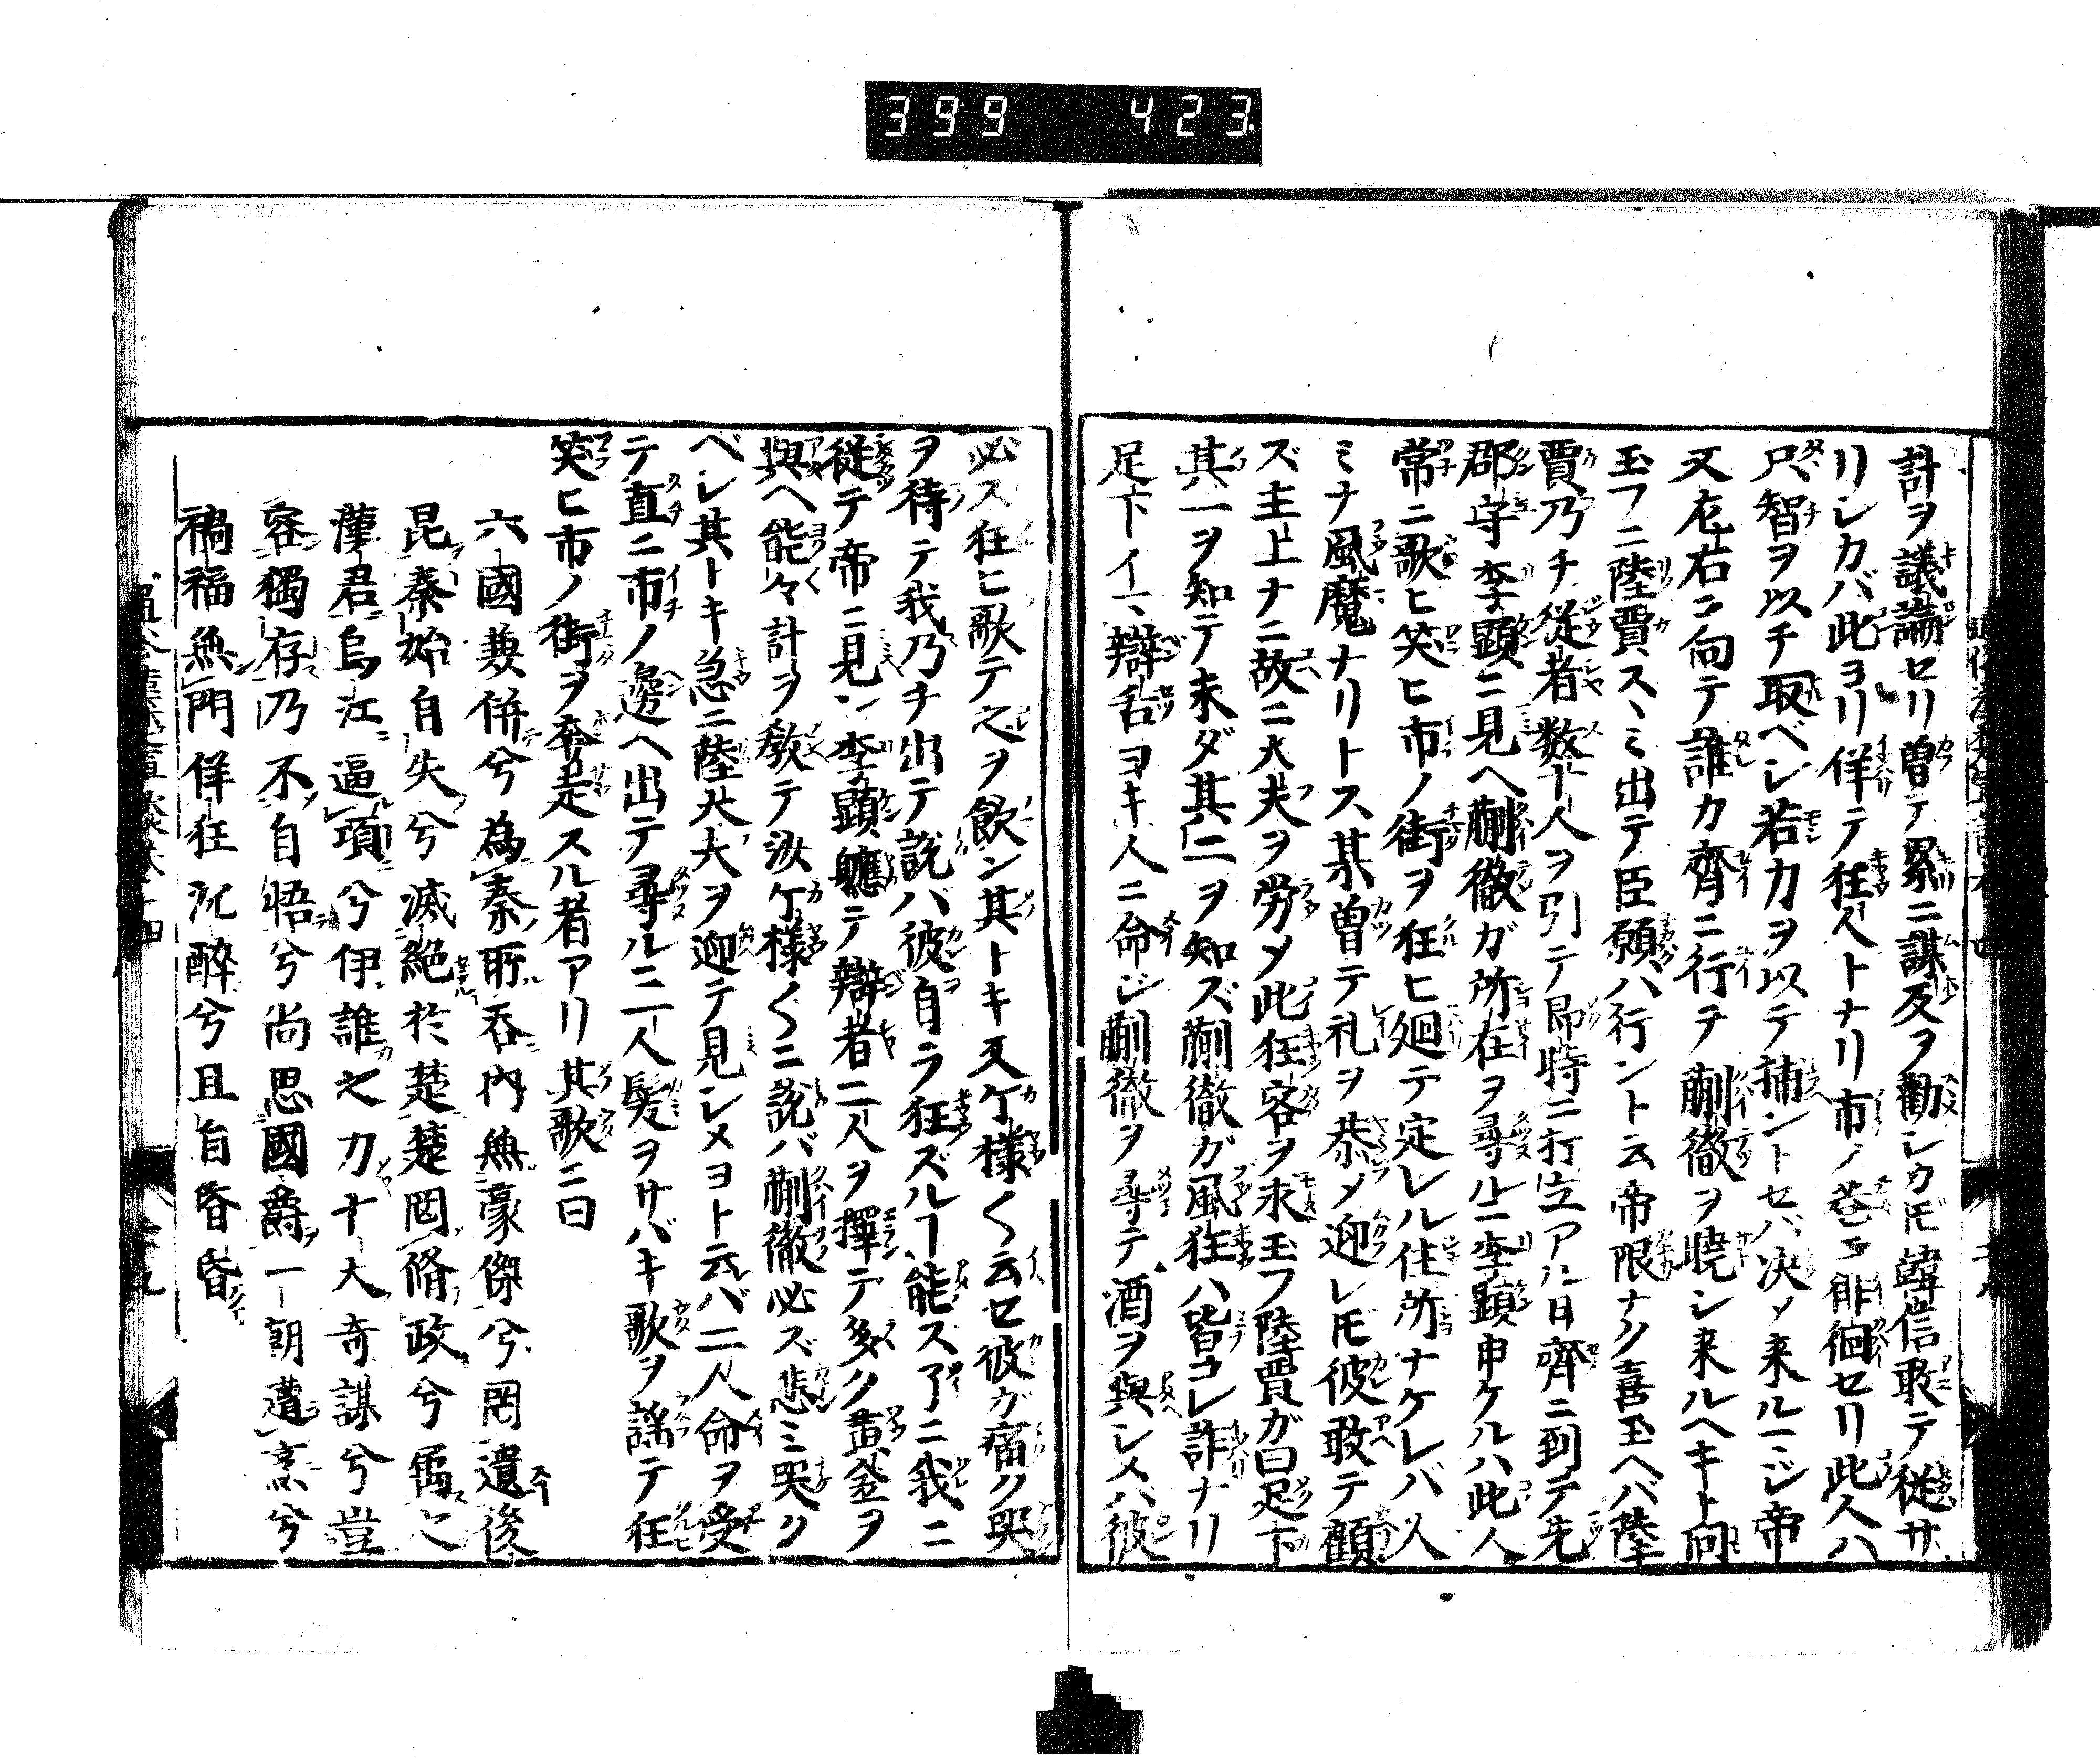 399 423
計ヲ議論セリ曽テ累ニ謀反ヲ勸シカ𪜈韓信敢テ從サ
リシカバ此ヨリ佯テ狂人トナリ市ノ巷ニ徘徊セリ此人ハ
只智ヲ以チ取ベシ若力ヲ以テ捕ントセバ决メ来ルージ帝
又左右ニ向テ誰カ齊ニ行テ蒯徹ヲ曉シ来ルヘキト向
玉フニ陸賈スヽミ出テ臣願ハ行ント云帝限ナク喜玉ヘバ陸
賈乃チ從者数十人ヲ引テ即時ニ打立アル日齊ニ到テ先
郡守李顕ニ見ヘ蒯徹ガ所在ヲ尋ルニ李顕申ケルハ此人
常ニ歌ヒ笑ヒ市ノ街ヲ狂ヒ廻テ定レル住所ナケレバ人
ミナ風魔ナリトス某曽テ礼ヲ恭メ迎レ𪜈彼敢テ顧
ズ主上ナニ故ニ大夫ヲ労メ此狂客ヲ求玉フ陸賈ガ曰足下
其一ヲ知テ未ダ其二ヲ知ズ蒯徹ガ風狂ハ皆コレ詐ナリ
足下イマ辯舌ヨキ人ニ命ジ蒯徹ヲ尋テ酒ヲ與シメハ彼
必ス狂ヒ歌テ之ヲ飲ン其トキ又ケ様く云セ彼ガ痛ク哭
ヲ待テ我乃チ出テ説バ彼自ラ狂ズルー能ス了ニ我ニ
從テ帝ニ見ン李顕軈テ辯者二人ヲ擇テ多ク黄金ヲ
與ヘ能々計ヲ教テ汝ケ様くニ説バ蒯徹必ズ悲ミ哭ク
ベシ其トキ急ニ陸大夫ヲ迎テ見シメヨト云バ二人命ヲ受
テ直ニ市ノ邊ヘ出テ尋ルニ一人髪ヲサバキ歌ヲ謡テ狂
笑ヒ市ノ街ヲ奔走スル者アリ其歌ニ曰
六國兼併兮為秦所吞內無豪傑兮罔遺後
昆秦始自失兮滅絶於楚楚罔脩政兮屬之
漢君烏江逼項兮伊誰之力十大奇謀兮豈
容獨存乃不自悟兮尚思國爵一朝遭烹兮
禍福無門佯狂沉醉兮且自昏昏